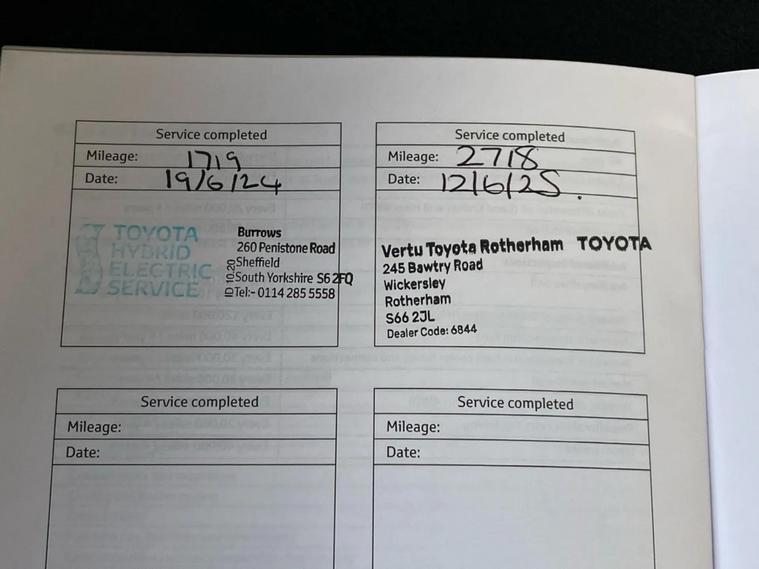 Service completed
Mileage: 1719
Date: 19/6/24
TOYOTA
HYBRID
ELECTRIC
SERVICE
Burrows
260 Penistone Road
Sheffield
South Yorkshire S6 2FQ
Tel:- 0114 285 5558
ID 10.20
Service completed
Mileage: 2718
Date: 12/6/25.
Vertu Toyota Rotherham TOYOTA
245 Bawtry Road
Wickersley
Rotherham
S66 2JL
Dealer Code: 6844
Service completed
Mileage:
Date:
Service completed
Mileage:
Date: